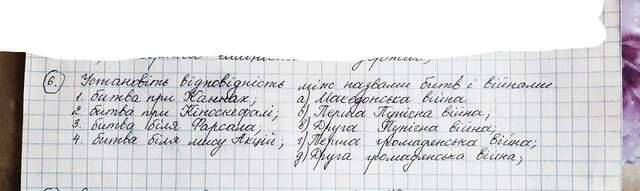 6. Установіть відповідність між назвами битв і війнами
1. битва при Каннах; а) Македонська війна
2. битва при Кіноскефалі; б) Перша Пунічна війна;
3. битва біля Фарсала; в) Друга Пунічна війна;
4. битва біля мису Акцій; г) Перша громадянська війна;
д) Друга громадянська війна;